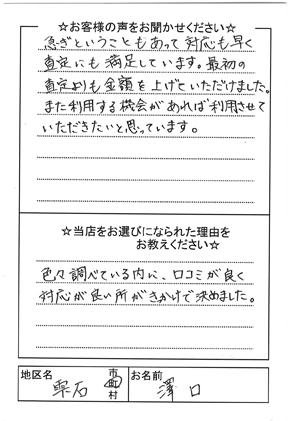 ☆お客様の声をお聞かせください☆
急ぎということもあって対応も早く
査定にも満足しています。最初の
査定よりも金額を上げていただけました。
また利用する機会があれば利用させて
いただきたいと思っています。
☆当店をお選びになられた理由を
お教えください☆
色々調べている内に、口コミが良く
対応が良い所がきかけで決めました。
地区名 雫石 市町村 お名前 澤口